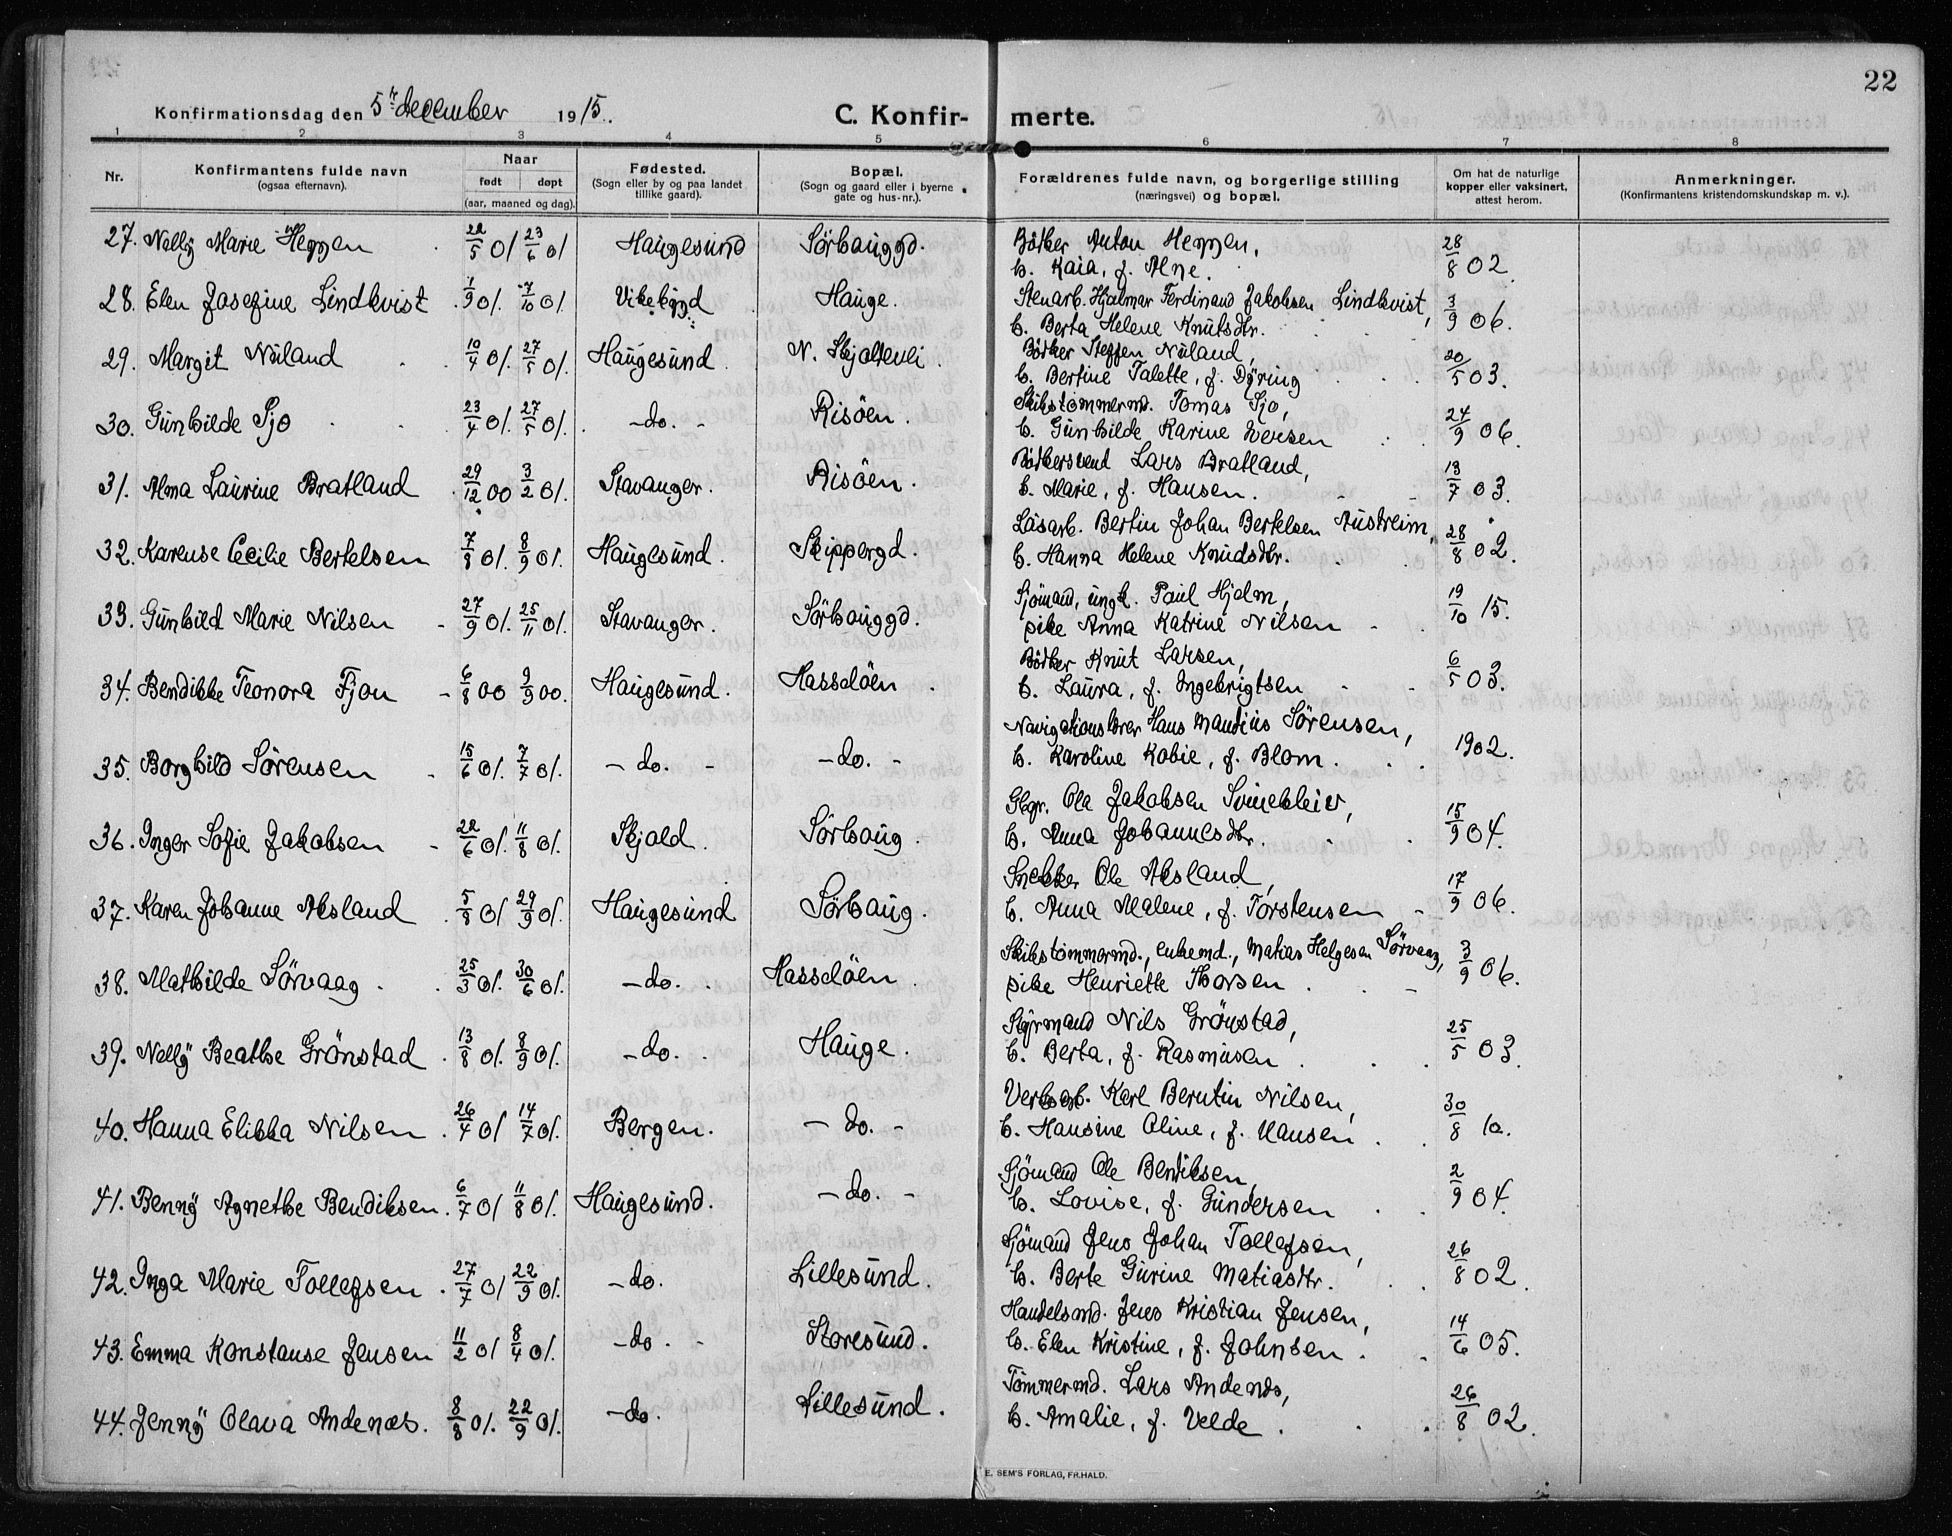 22
Konfirmationsdag den 5te december 1915.
C. Konfir- merte.
1 2 3 4 5 6 7 8
Nr.
Konfirmantens fulde navn
(ogsaa efternavn).
Naar
født døpt
(aar, maaned og dag).
Fødested.
(Sogn eller by og paa landet
tillike gaard).
Bopæl.
(Sogn og gaard eller i byerne
gate og hus-nr.).
Forældrenes fulde navn, og borgerlige stilling
(næringsvei) og bopæl.
Om hat de naturlige
kopper eller vaksinert,
attest herom.
Anmerkninger.
(Konfirmantens kristendomskundskap m. v.).
27. Nelly Marie Heggen 22/5 01 23/6 01 Haugesund Sörhauggd. Bödker Anton Heggen, 28/8 02
h. Kaia, f. Alne.
28. Elen Josefine Lindkvist 1/9 01. 7/10 01. Vikebygd Hauge. Stenarb. Hjalmar Ferdinand Jakobsen Lindkvist, 3/9 06.
h. Berta Helene Knutsdtr.
29. Margit Nuland 10/4 01. 27/5 01. Haugesund. N. Skjoltevei. Bödker Steffen Nuland, 20/5 03.
h. Bertine Talette, f. Döring
30. Gunhilde Sjo 23/4 01. 27/5 01. -do.- Risöen. Skibstömmermd. Tomas Sjo, 24/9 06.
h. Gunhilde Karine Iversen
31. Alma Laurine Bratland 29/12 00 3/2 01. Stavanger. Risöen. Bödkersvend Lars Bratland, 13/7 03.
h. Marie, f. Hansen.
32. Karense Cecilie Bertelsen 7/8 01. 8/9 01. Haugesund. Skippergd. Lösarb. Bertin Johan Bertelsen Austreim, 28/8 02.
h. Hanna Helene Knudsdtr.
33. Gunhild Marie Nilsen 27/9 01. 25/11 01. Stavanger. Sörhauggd. Sjömand, ungk. Paul Hjelm, 19/10 15.
pike Anna Katrine Nilsen
34. Bendikke Teonora Fjon 6/8 00 9/9 00. Haugesund. Hasselöen. Bödker Knut Larsen, 6/5 03.
h. Laura, f. Ingebrigtsen
35. Borghild Sörensen 15/6 01. 7/7 01. - do. - - do. - Navigationslærer Hans Mandius Sörensen, 1902.
h. Karoline Kobie, f. Blom.
36. Inger Sofie Jakobsen 22/6 01. 11/8 01. Skjold. Sörhaug. Gbr. Ola Jakobsen Svinekleiv, 15/9 04.
h. Anna Johannesdtr.
37. Karen Johanne Aksland 5/8 01 29/9 01. Haugesund Sörhaug. Snekker Ole Aksland, 17/9 06.
h. Anna Malene, f. Torstensen
38. Mathilde Sörvaag 25/3 01. 30/6 01. - do. Hasselöen Skibstömmermd., enkemd., Matias Helgesen Sörvaag, 3/9 06.
pike Henriette Thorsen
39. Nelly Beathe Grönstad 13/8 01. 8/9 01. - do. Hauge. Styrmand Nils Grönstad, 25/5 03.
h. Berta, f. Rasmusen
40. Hanna Elikka Nilsen 26/4 01 14/7 01. Bergen. - do. - Verksarb. Karl Berntin Nilsen, 30/8 10.
h. Hansine Oline, f. Hansen
41. Benny Agnethe Bendiksen. 6/7 01 11/8 01. Haugesund. - do. - Sjömand Ole Bendiksen, 2/9 04.
h. Lovise, f. Gundersen
42. Inga Marie Tollefsen 27/7 01 22/9 01. - do. Lillesund. Sjömand Jens Johan Tollefsen, 26/8 02.
h. Berte Gurine Matiasdtr.
43. Emma Konstanse Jensen 11/2 01 8/4 01. - do. - Storesund. Handelsmd. Jens Kristian Jensen, 14/6 05.
h. Elen Kristine, f. Johnsen
44. Jenny Olava Andenæs. 8/8 01. 22/9 01. - do. Lillesund. Tömmermd. Lars Andenæs, 26/8 02.
h. Amalie, f. Velde
E. SEM'S FORLAG, FR.HALD.